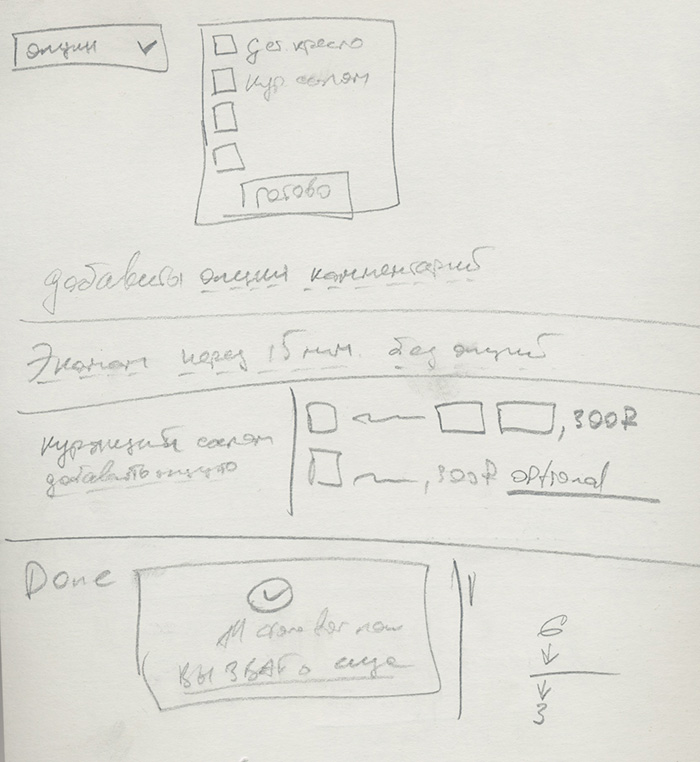 опции
дет. кресло
кур салон
готово
добавить опции комментарий
Эконом через 15 мин. без опций
курящий салон
добавить
, 300₽
, 300₽ optional
Done
ВЫЗВАТЬ еще
6
3